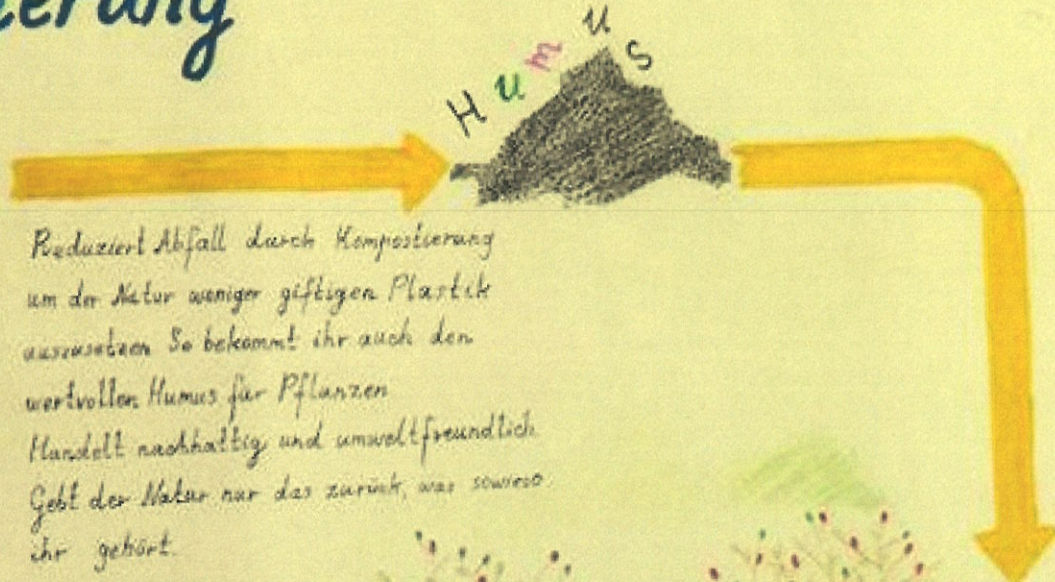 ierung
Humus
Reduziert Abfall durch Kompostierung
um der Natur weniger giftigen Plastik
auszusetzen So bekommt ihr auch den
wertvollen Humus für Pflanzen
Handelt nachhaltig und umweltfreundlich
Gebt der Natur nur das zurück, was sowieso
ihr gehört.